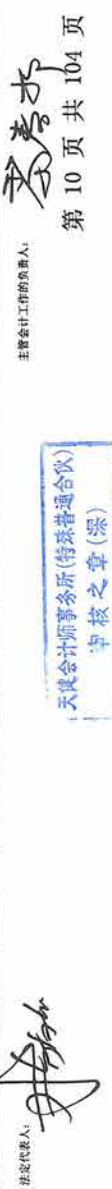 法定代表人:
天健会计师事务所(特殊普通合伙)
审核之章(深)
主管会计工作的负责人:
第 10 页 共 104 页